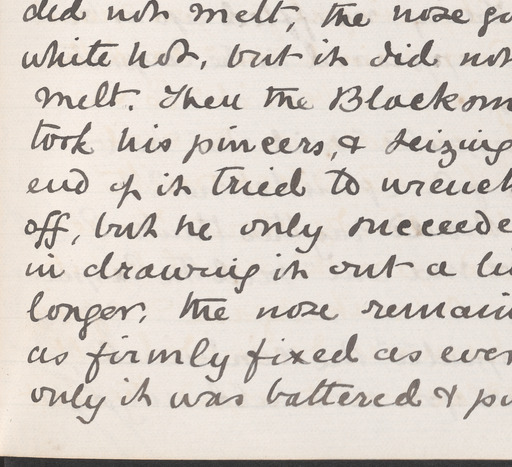 did not melt, the nose
white hot, but it did not
melt. Then the Blacksm
took his pincers, & seizing
end of it tried to wrench
off, but he only succeede
in drawing it out a li
longer. The nose remain
as firmly fixed as ever
only it was battered & pu